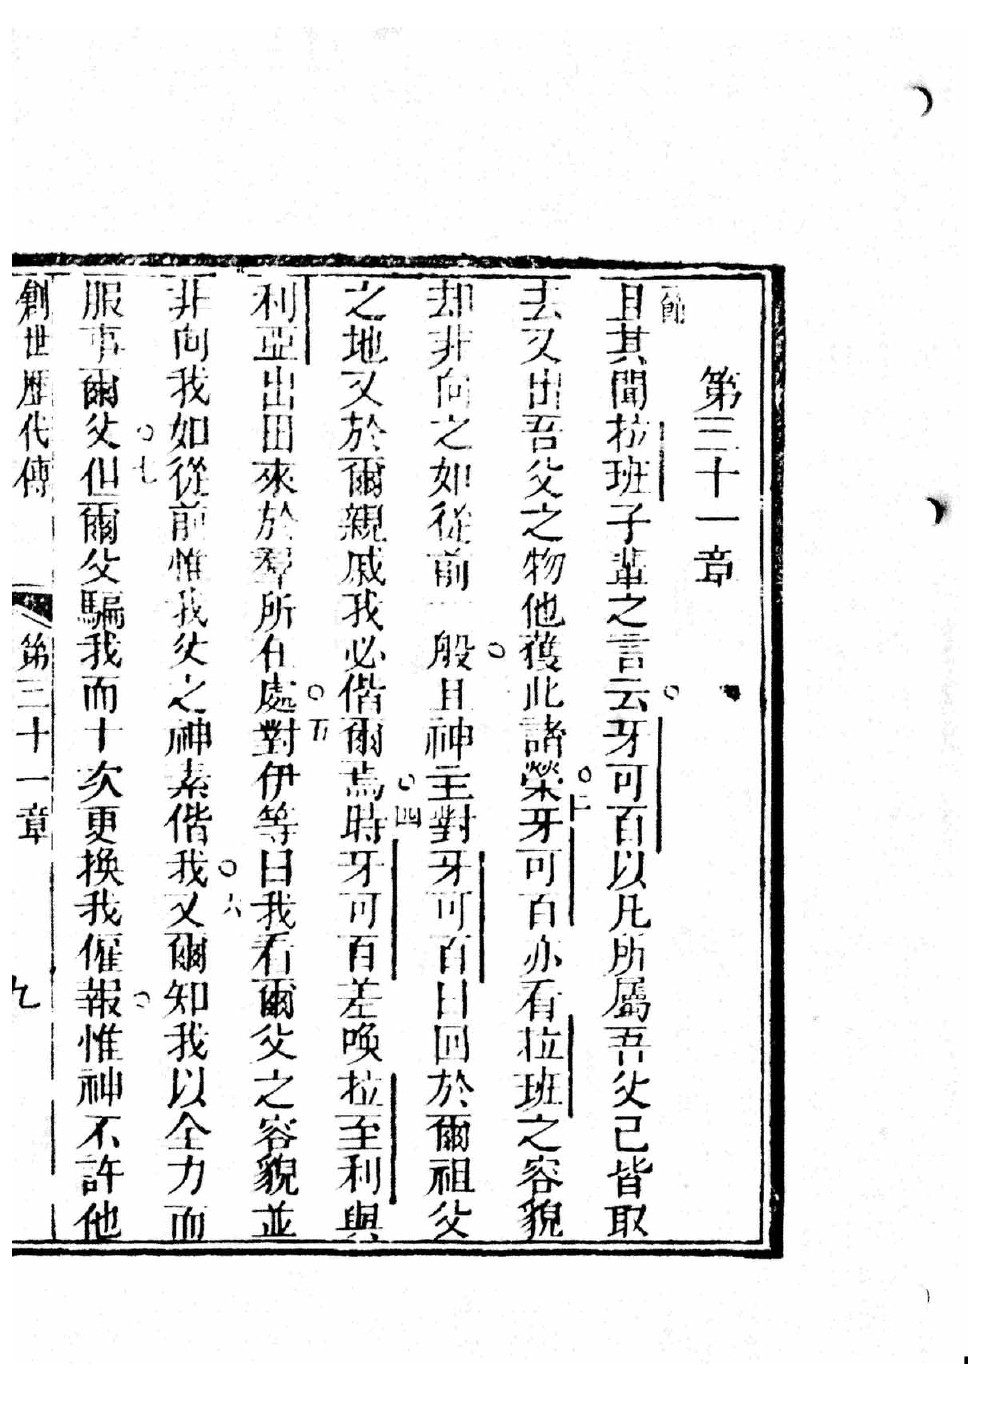 第三十一章
節
且其聞拉班子輩之言云牙可百以凡所屬吾父已皆取
去又出吾父之物他獲此諸榮○二牙可百亦看拉班之容貌
却非向之如從前一般○且神主對牙可百曰回於爾祖父
之地又於爾親戚我必偕爾焉○四時牙可百差喚拉至利與
利亞出田來於羣所在處○五對伊等曰我看爾父之容貌並
非向我如從前惟我父之神素偕我○六又爾知我以全力而
服事爾父○七但爾父騙我而十次更換我僱報○惟神不許他
創世歷代傳 第三十一章 九